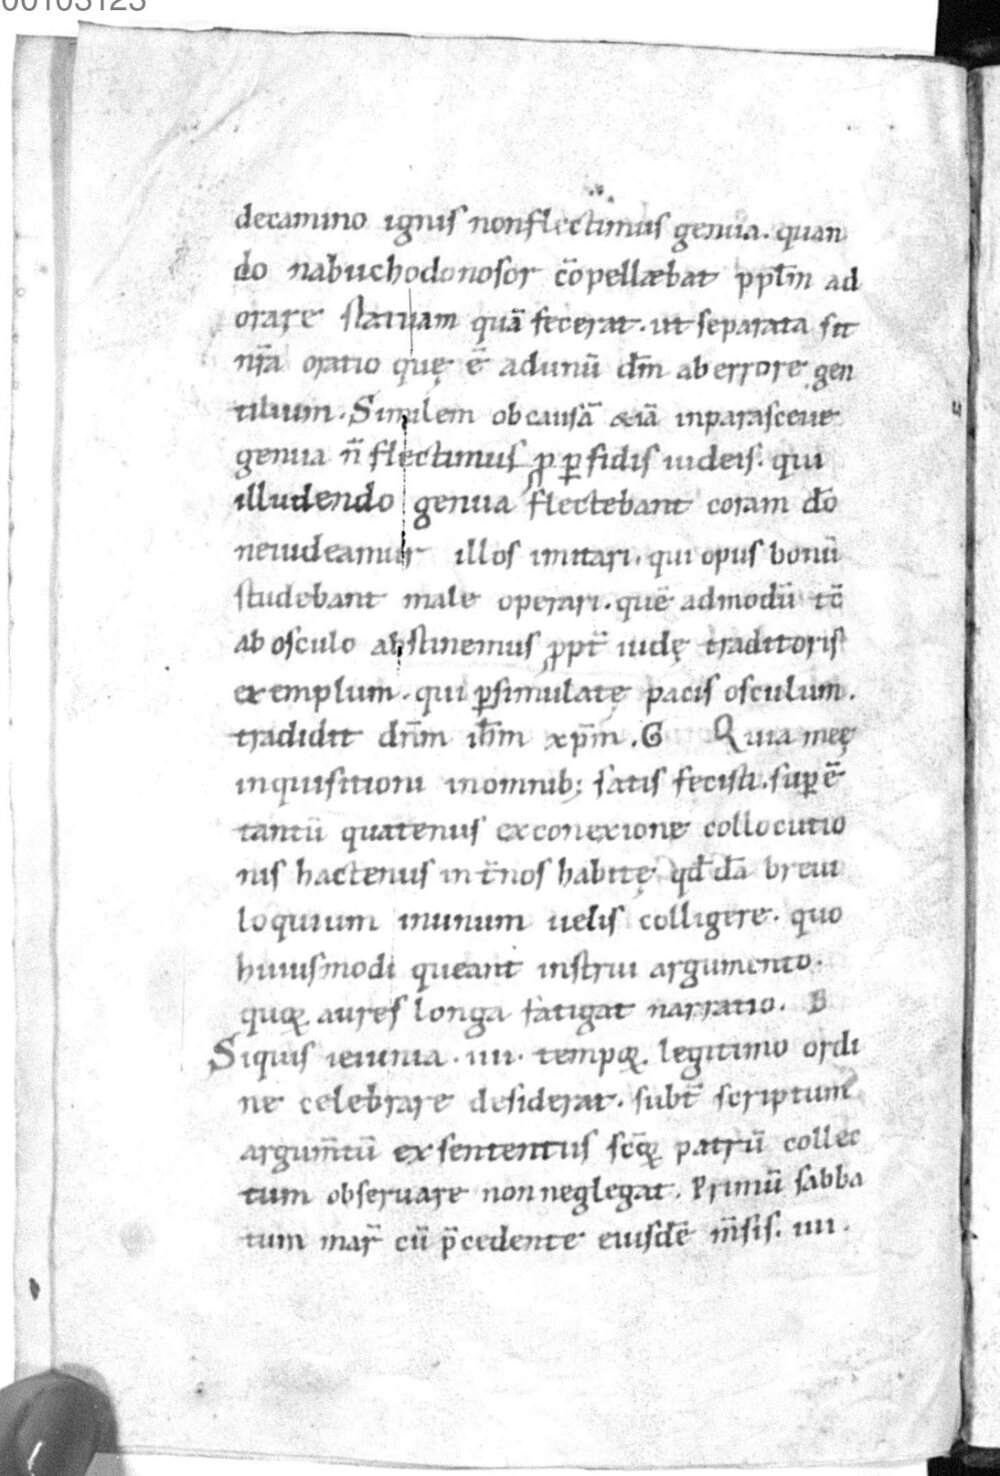 00103123
decamino ignis non flectimus genua. quan
do nabuchodonosor c̄opellæbat ppl̄m ad
orare statuam quā fecerat. ut separata sit
nr̄a oratio quę ē adunū dm̄ ab errore gen
tilium. Similem ob causā &iā inparasceue
genua n̄ flectimus ꝓ ꝑfidis iudeis. qui
illudendo genua flectebant coram dō
neuideamur illos imitari. qui opus bonū
studebant male operari. quē admodū &c̄
ab osculo abstinemus ꝓpt̄ iudę traditoris
exemplum. qui ꝑsimulatę pacis osculum.
tradidit dn̄m ih̄m xp̄m. G Quia meę
inquisitioni inomnib; satis fecisti. suꝑē
tantū quatenus exconexione collocutio
nis hactenus int̄nos habitę qd̄dā breui
loquium inunum uelis colligere. quo
huiusmodi queant instrui argumento.
quoꝝ aures longa fatigat narratio. B
Siquis ieiunia. iiii. tempoꝝ. legitimo ordi
ne celebrare desiderat. subt̄ scriptum
argum̄tū ex sententiis sc̄oꝝ patrū collec
tum obseruare non neglegat. Primū sabba
tum mar̄ cū p̄cedente eiusdē m̄sis. iiii.